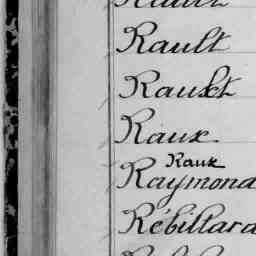 Rault
Rault
Rault
Raux
Raux
Raymond
Rébillard